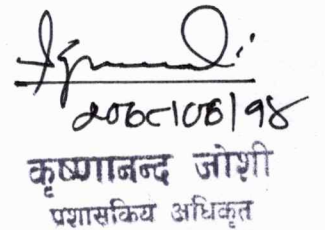 २०६८।०६।१४
कृष्णानन्द जोशी
प्रशासकिय अधिकृत